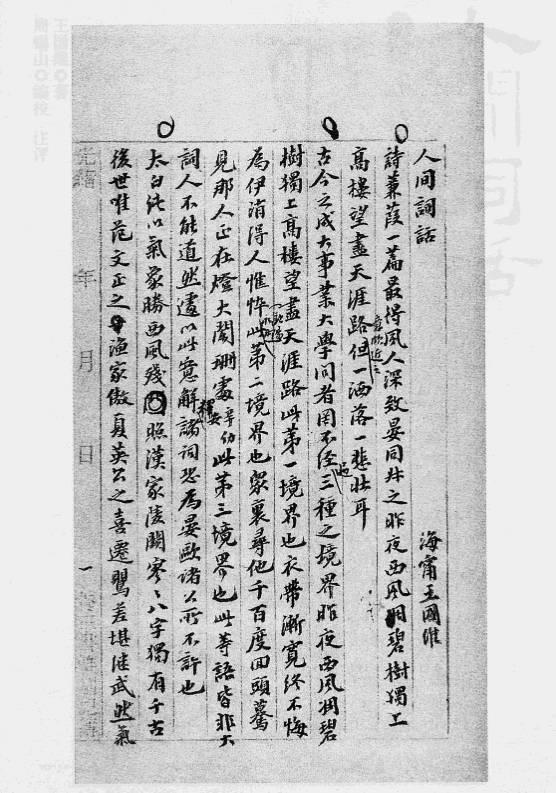 人间詞話
海甯王國維
詩蒹葭一篇最得風人深致晏同叔之昨夜西風凋碧樹獨上
高樓望盡天涯路意頗近之但一洒落一悲壯耳
古今之成大事業大學問者罔不經三種之境界昨夜西風凋碧
樹獨上高樓望盡天涯路此第一境界也衣帶漸寬終不悔
為伊消得人憔悴此第二境界也衆裏尋他千百度回頭驀
見那人正在燈火闌珊處辛幼安此第三境界也此等語皆非大
詞人不能道然遽以此意解釋諸詞恐為晏歐諸公所不許也
太白純以氣象勝西風殘照漢家陵闕寥〻八字獨有千古
後世唯范文正之漁家傲夏英公之喜遷鶯差堪繼武然氣
光緒 年 月 日 一